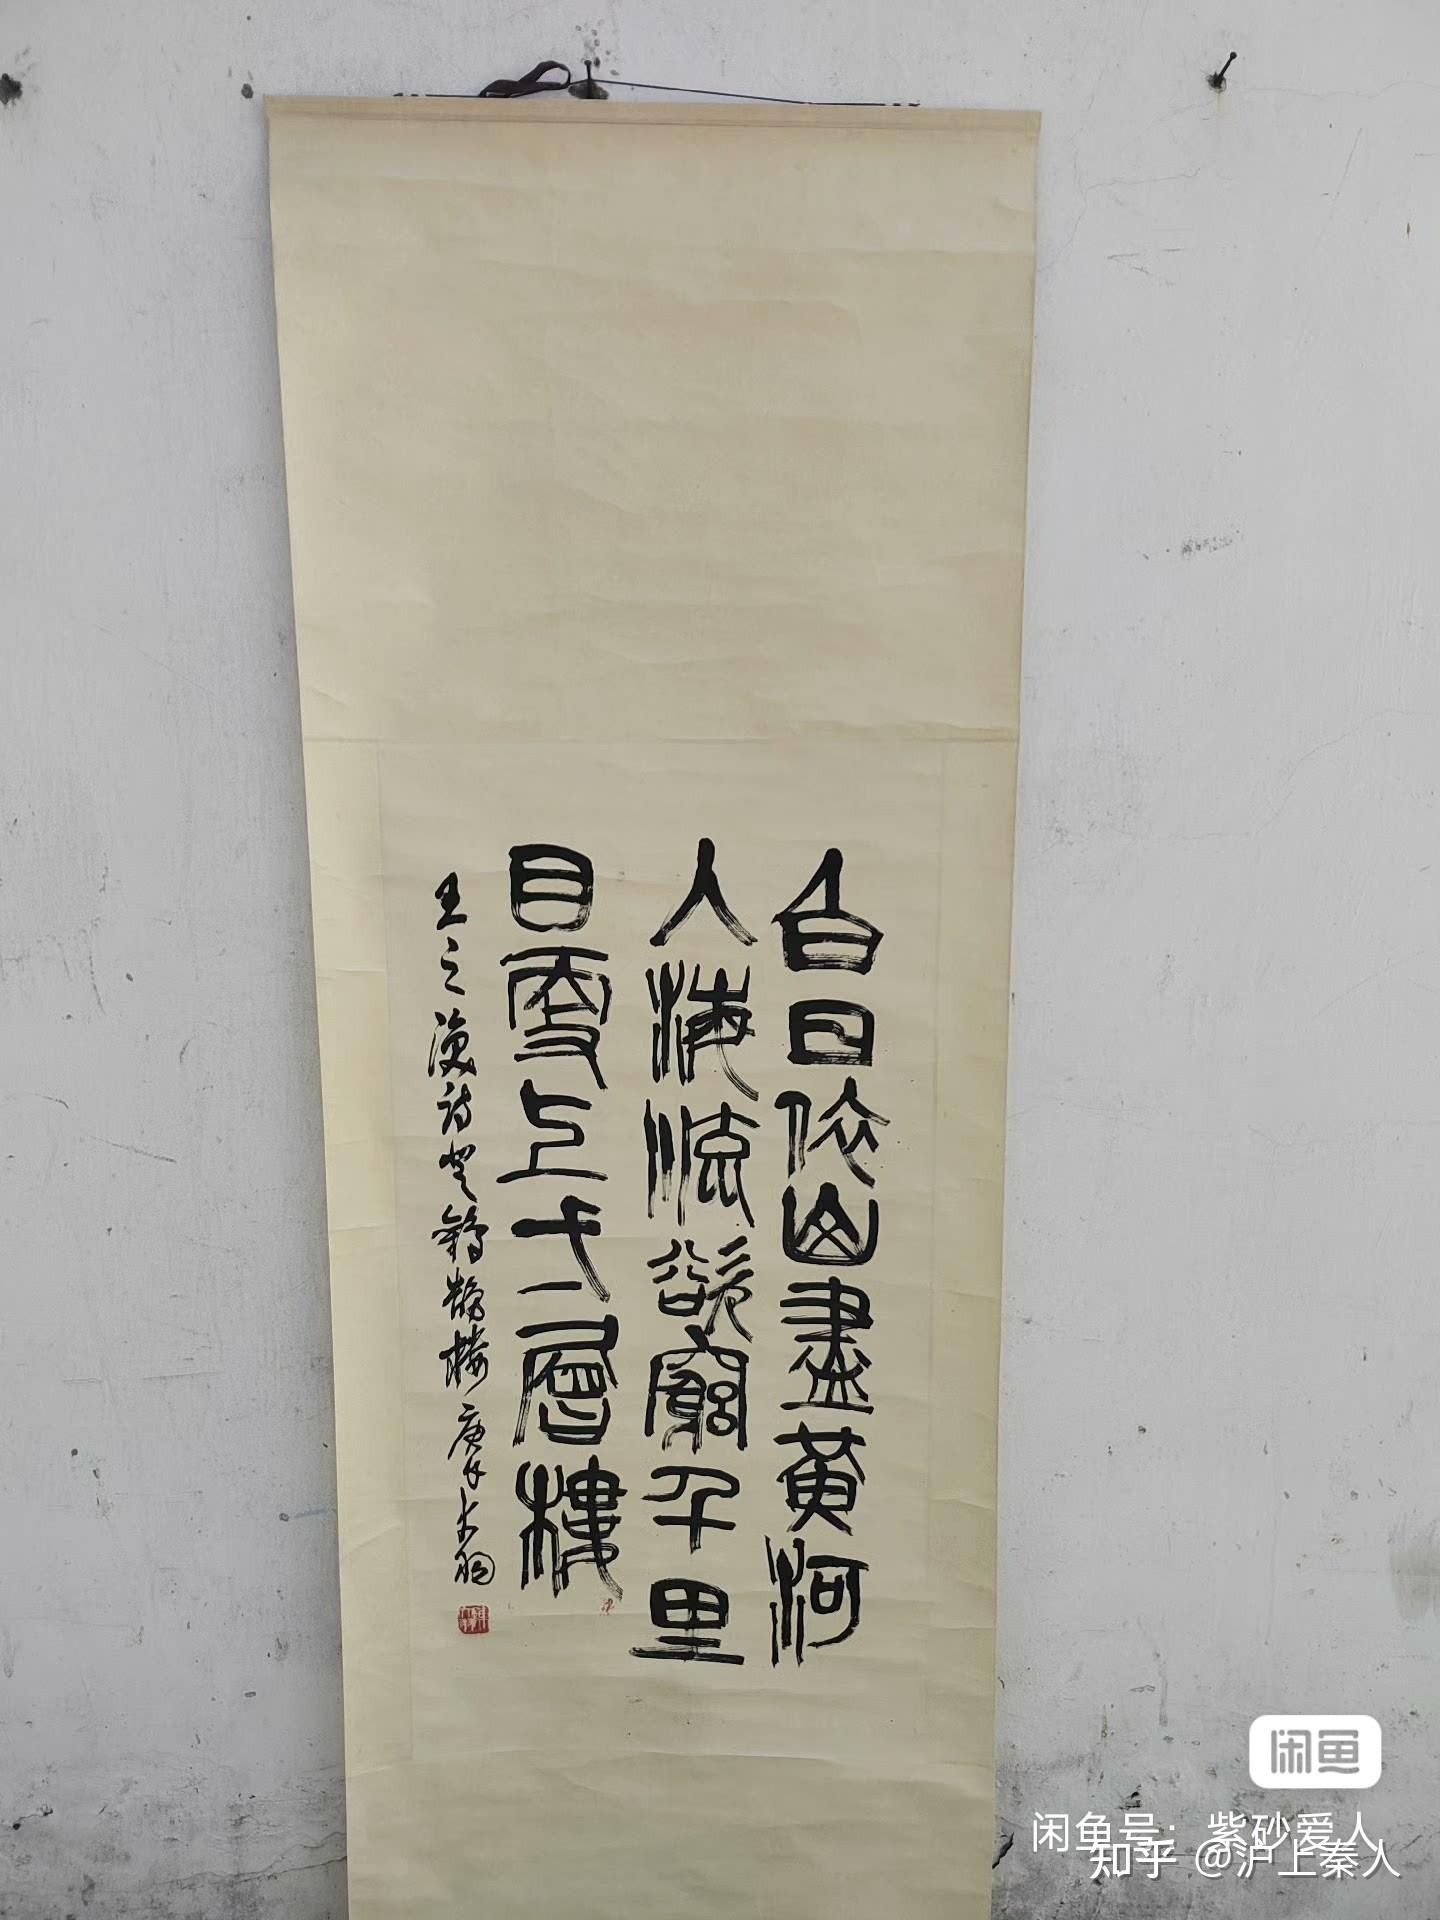 白日依山盡黃河
入海流欲窮千里
目更上一層樓
王之渙詩登鸛鵲樓 庚午 大羽
闲鱼
闲鱼号：紫砂爱人
知乎 @沪上秦人